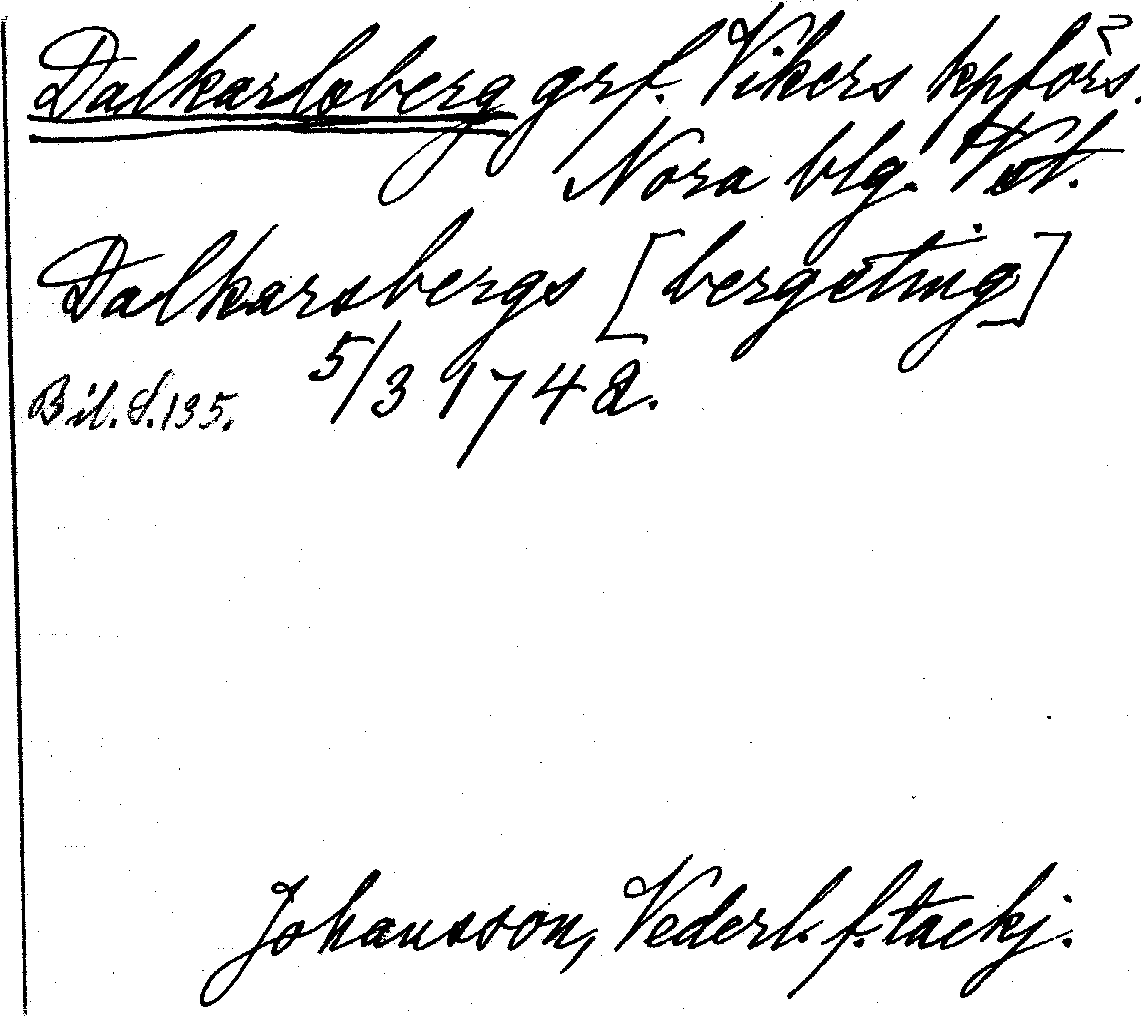 Dalkarlsberg grf. Vikers kpförs.
Nora blg. Vstm.
Dalkarsbergs [bergsting]
Bil. S. 135. 5/3 1742.
Johansson, Vederl. f. tackj.